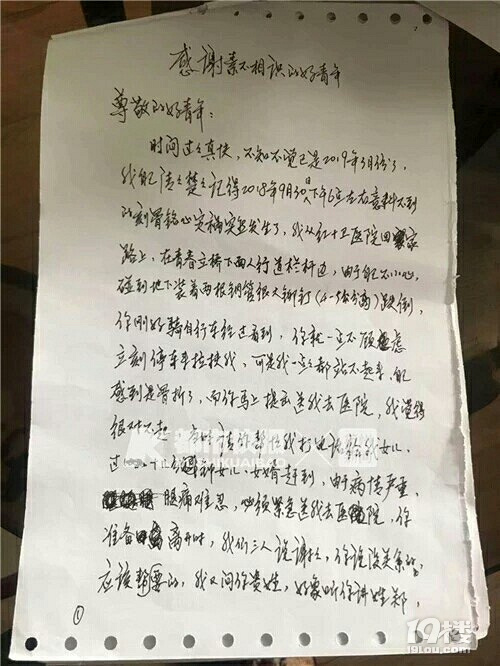 感谢素不相识的好青年
尊敬的好青年：
时间过的真快，不知不觉已是2019年3月份了，
我能清清楚楚记得2018年9月30日下午6点左右意料不到
的刻骨铭心灾祸突然发生了，我从红十字医院回家
路上，在青春立桥下面人行道栏杆边，由于自己不小心，
碰到地下装着两根钢管很大铆钉（4-5公分高）跌倒，
你刚好骑自行车经过看到，你就一点不顾虑
立刻停车来拉扶我，可是我一点都站不起来，
感到是骨折了，而你马上提出送我去医院，我觉得
很对不起，请你帮我打电话给我女儿，
过二十几分钟女儿、女婿赶到，由于病情严重，
腿痛难忍，必须紧急送我去医院，你
准备离开时，我们三人说谢谢，你说没关系的，
应该帮的，我又问你贵姓，好象听你讲姓郑，
①
19楼
19lou.com